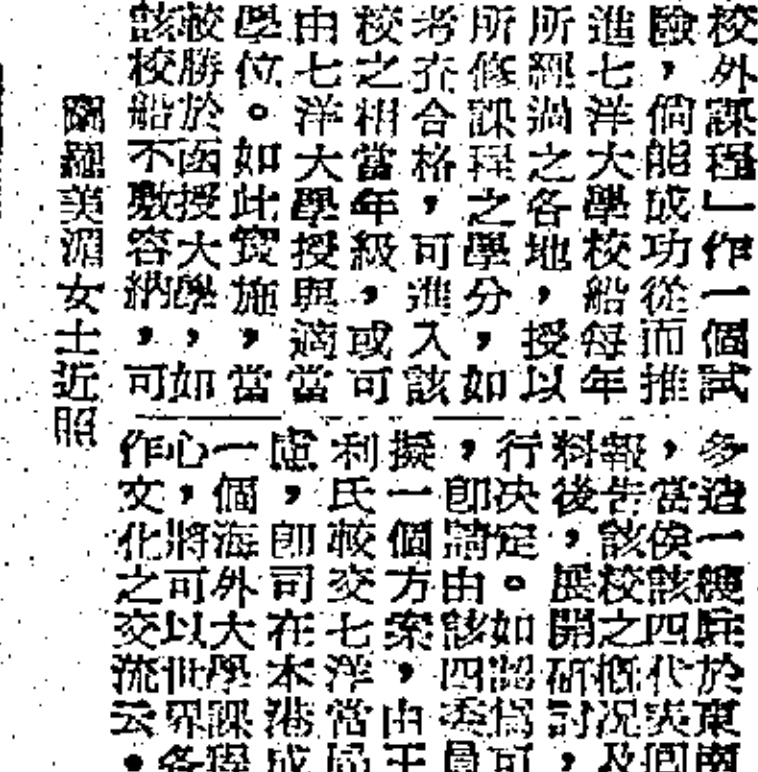 校外課程」作一個試
驗，倘能成功從而推
進七洋大學校船每年
所經過之各地，授以
所修課程之學分，如
考齐合格，可進入該
校之相當年級，或可
由七洋大學授與適當
學位。如此實施，當
較勝於函授大學，如
該校船不敷容納，可
多造一艘駐於東南
，當俟該四代表囘
報告該校之概况及
料後，展開研討，
行决定。如認爲可
，卽請由該四委員
擬一個方案，由王
利氏較交七洋當局
慮，卽司在本港成
一個海外大學課程
心，將可以世界各
作文化之交流云。
羅美湄女士近照